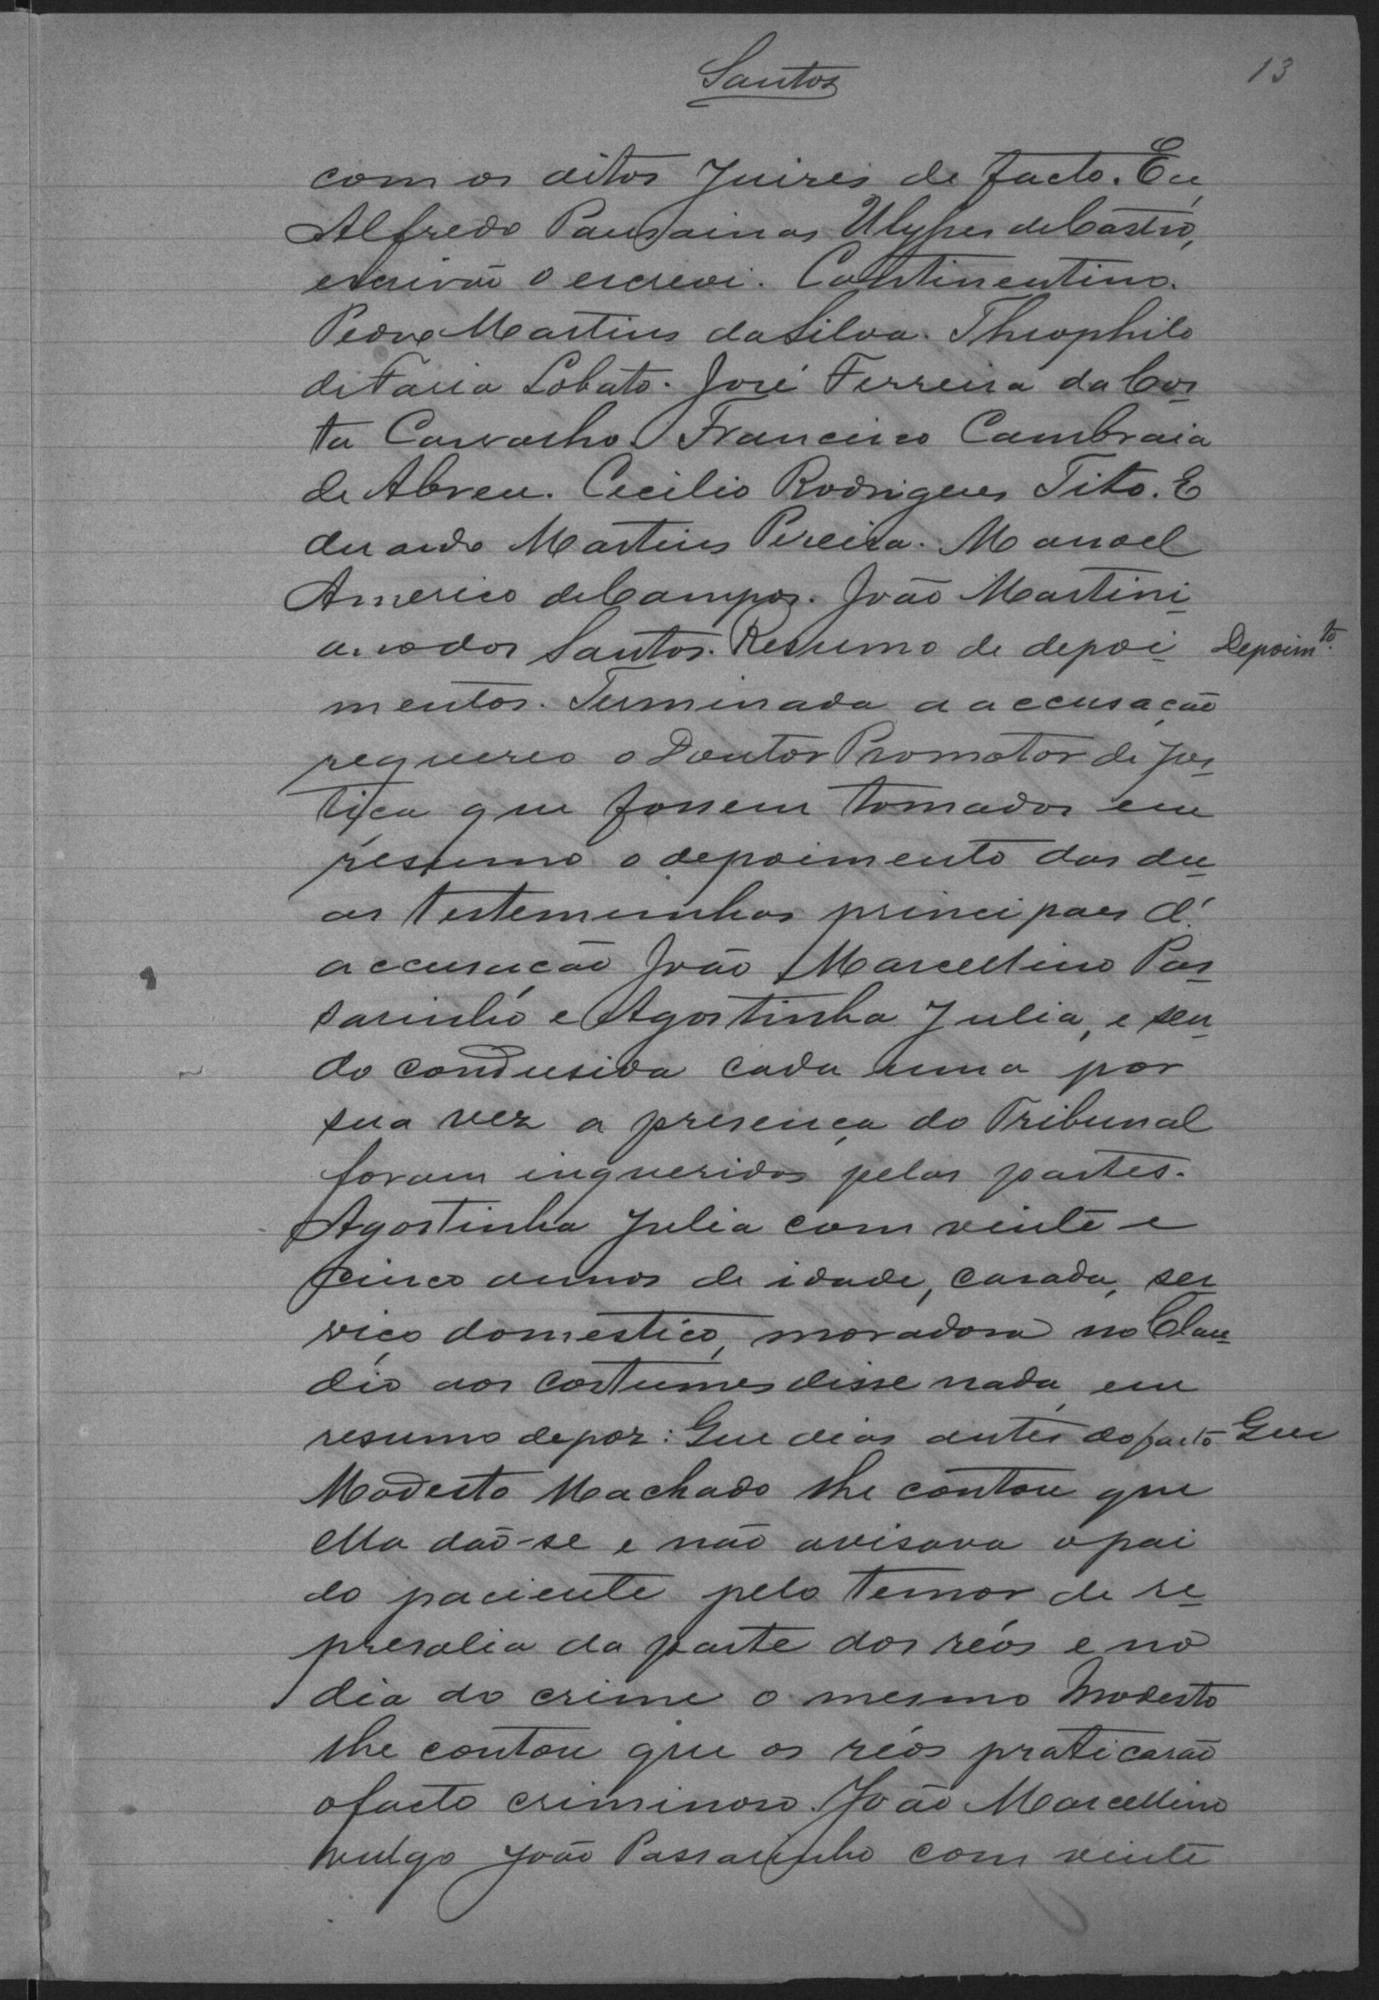 Santos
13
com os ditos Juizes de facto. Eu,
Alfredo Pausainas Ulysses de Castro,
escrivão o escrevi. Continentino.
Pedro Martins da Silva. Theophilo
de Faria Lobato. José Ferreira da Cos-
ta Carvalho. Francisco Cambraia
de Abreu. Cecilio Rodrigues Tito. E
duardo Martins Pereira. Manoel
Americo de Campos. João Martini-
ano dos Santos. Resumo de depoi-
Depoimto.
mentos. Terminada a accusação
requereo o Doutor Promotor de Jus-
tiça que fossem tomados em
resumo o depoimento das du-
as testemunhas principaes d'
accusação João Marcellino Pas-
sarinho e Agostinha Julia, e sen-
do condusida cada uma por
sua vez a presença do Tribunal
foram inqueridas pelas partes.
Agostinha Julia com vinte e
cinco annos de idade, casada, ser
viço domestico, moradora no Clau-
dio aos costumes disse nada, em
resumo depoz: Que dias antes do facto Que
Modesto Machado lhe contou que
ella dão-se e não avisava o pai
do paciente pelo temor de re-
presalia da parte dos réos e no
dia do crime o mesmo Modesto
lhe contou que os réos praticarão
o facto criminoso. João Marcellino
vulgo João Passarinho com vinte